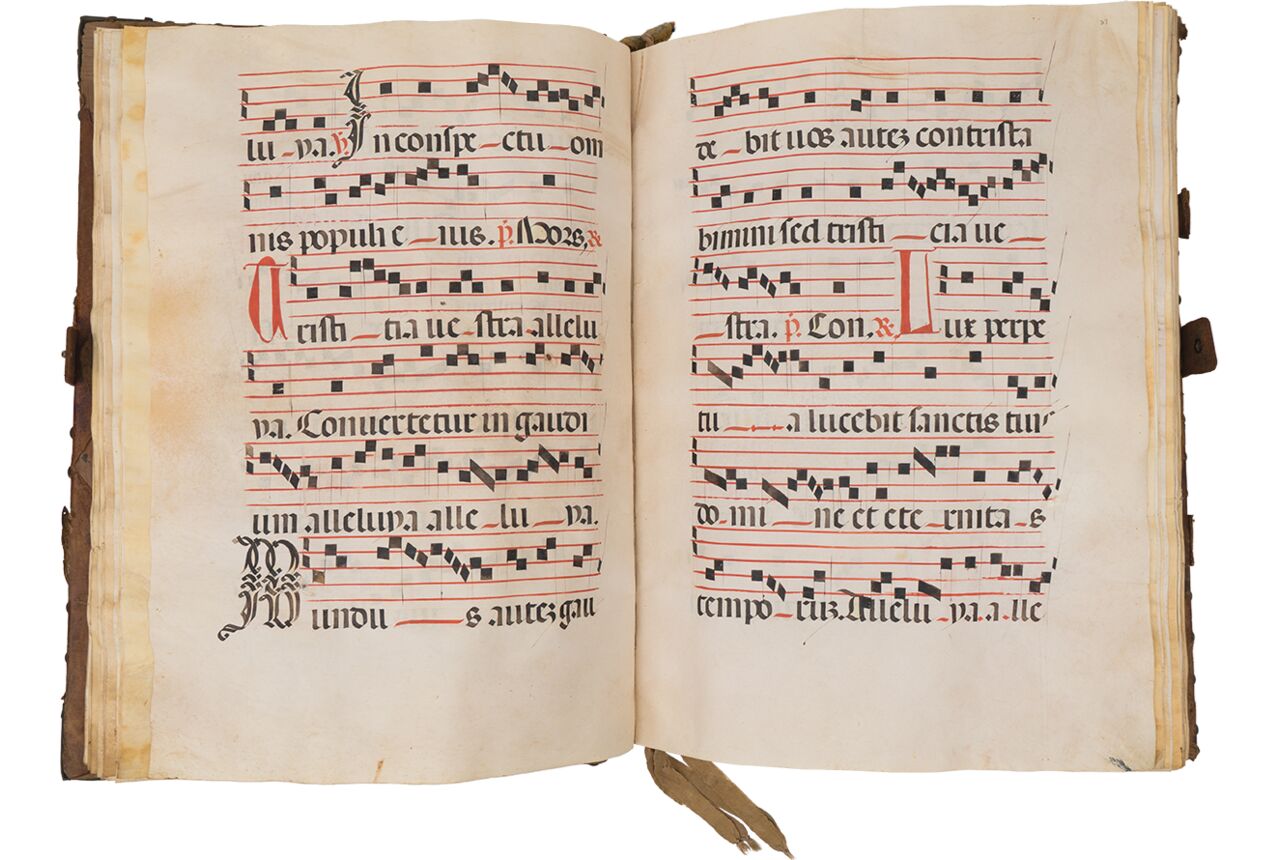 lu - ya. ℣. In conspe - ctu - om
nis populi e - ius. p. Mors, &
Tristi - tia ue - stra allelu
ya. Conuertetur in gaudi
um alleluya alle - lu - ya.
Mundu - s autez gau
de - bit uos autez contrista
bimini sed tristi - cia ue -
- stra. p. Con. & Lux perpe
tu - a lucebit sanctis tuis
do - mi - ne et ete - rnita - s
tempo - ruz. Allelu - ya. a - lle